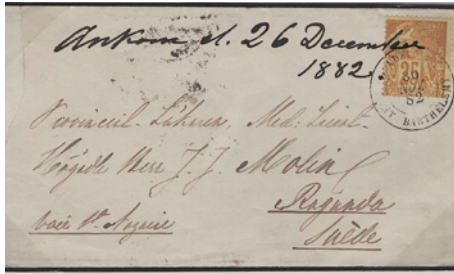 Ankom d. 26 December
1882
35
30
NOV
82
ST BARTHELEMY
Provincial-Läkaren, Med: Licent-
Högädle Herr J. J. Molin
Ragunda
voie St. Nazaire
Suède